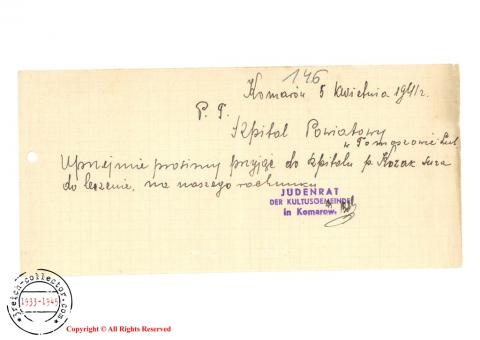 146
Komarów 5 kwietnia 1941 r.
P. T.
Szpital Powiatowy
w Tomaszowie Lub.
Uprzejmie prosimy przyjąć do szpitala p. Kozak Sura
do leczenie, na naszego rachunku
JUDENRAT
DER KULTUSGEMEINDE
in Komarow.
3reich-collector.com
1933-1945
Copyright © All Rights Reserved